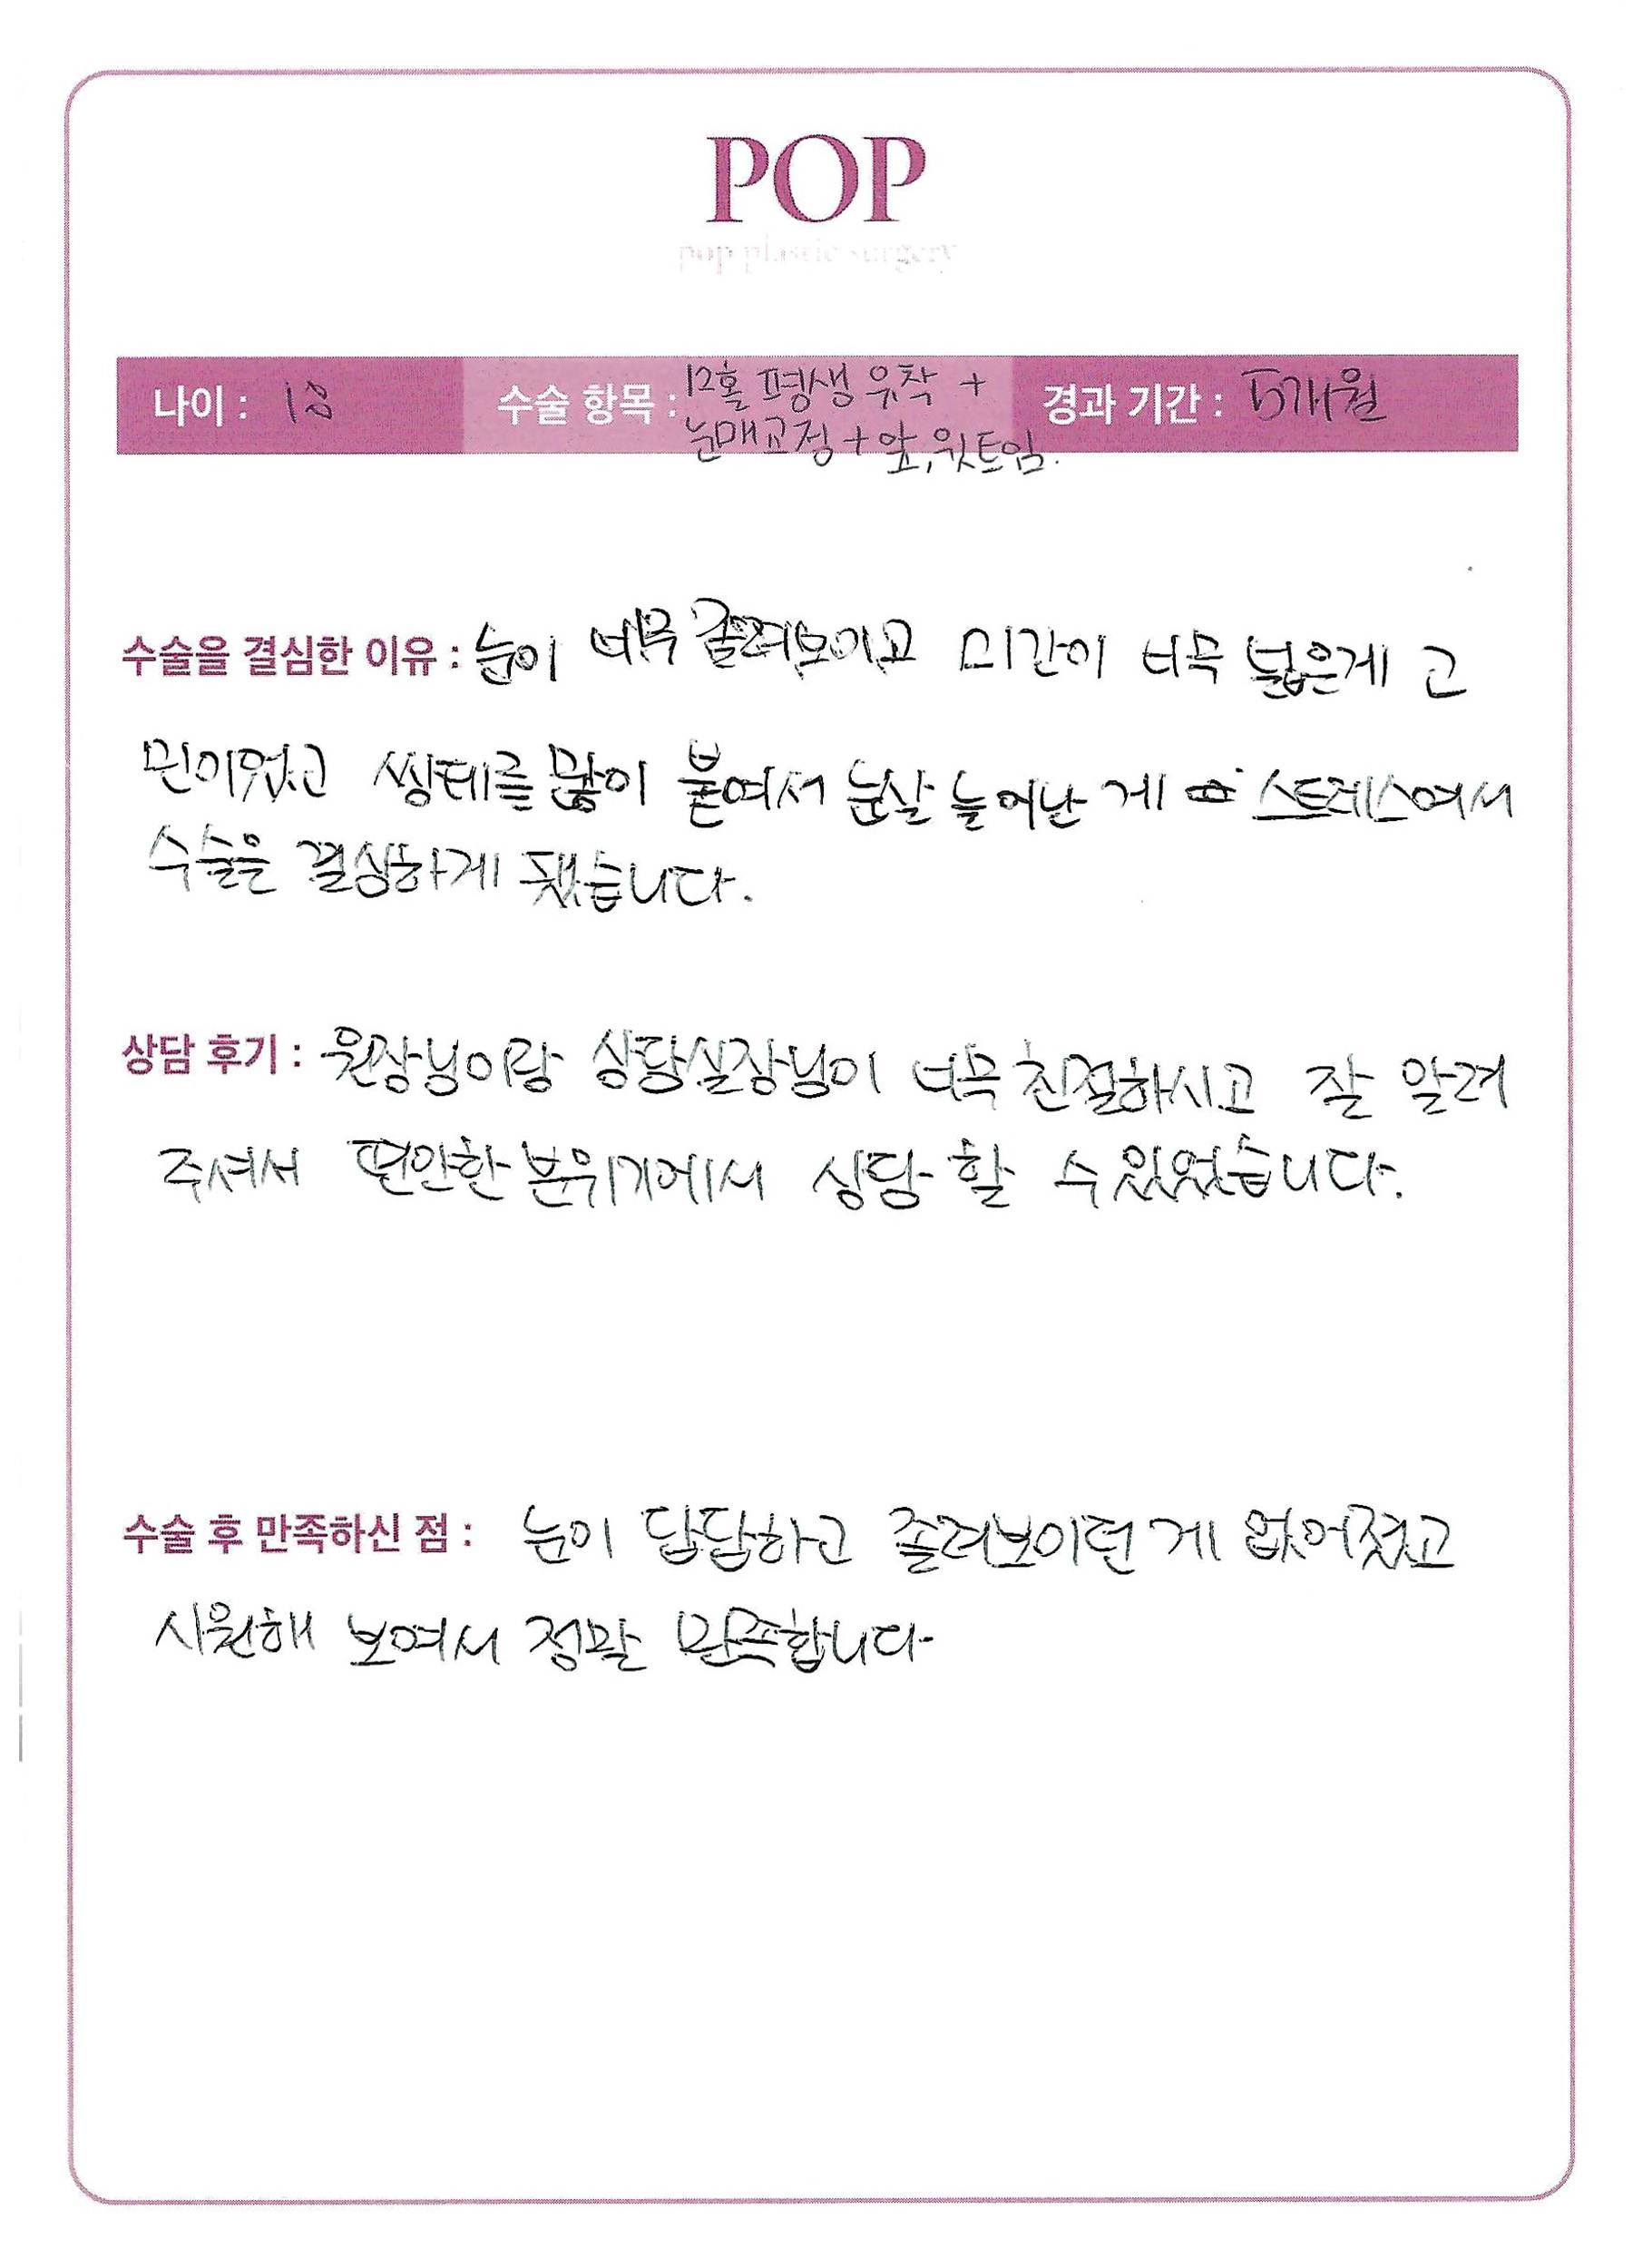 POP
pop plastic surgery
나이 : 18 수술 항목 : 12홀 평생유착 + 경과 기간 : 5개월
눈매교정 + 앞, 윗트임.
수술을 결심한 이유 : 눈이 너무 졸려보이고 미간이 너무 넓은게 고
민이었고 쌍테를 많이 붙여서 눈살 늘어난 게 스트레스여서
수술은 결심하게 됐습니다.
상담 후기 : 원장님이랑 상담실장님이 너무 친절하시고 잘 알려
주셔서 편안한 분위기에서 상담 할 수 있었습니다.
수술 후 만족하신 점 : 눈이 답답하고 졸려보이던 게 없어졌고
시원해 보여서 정말 만족합니다